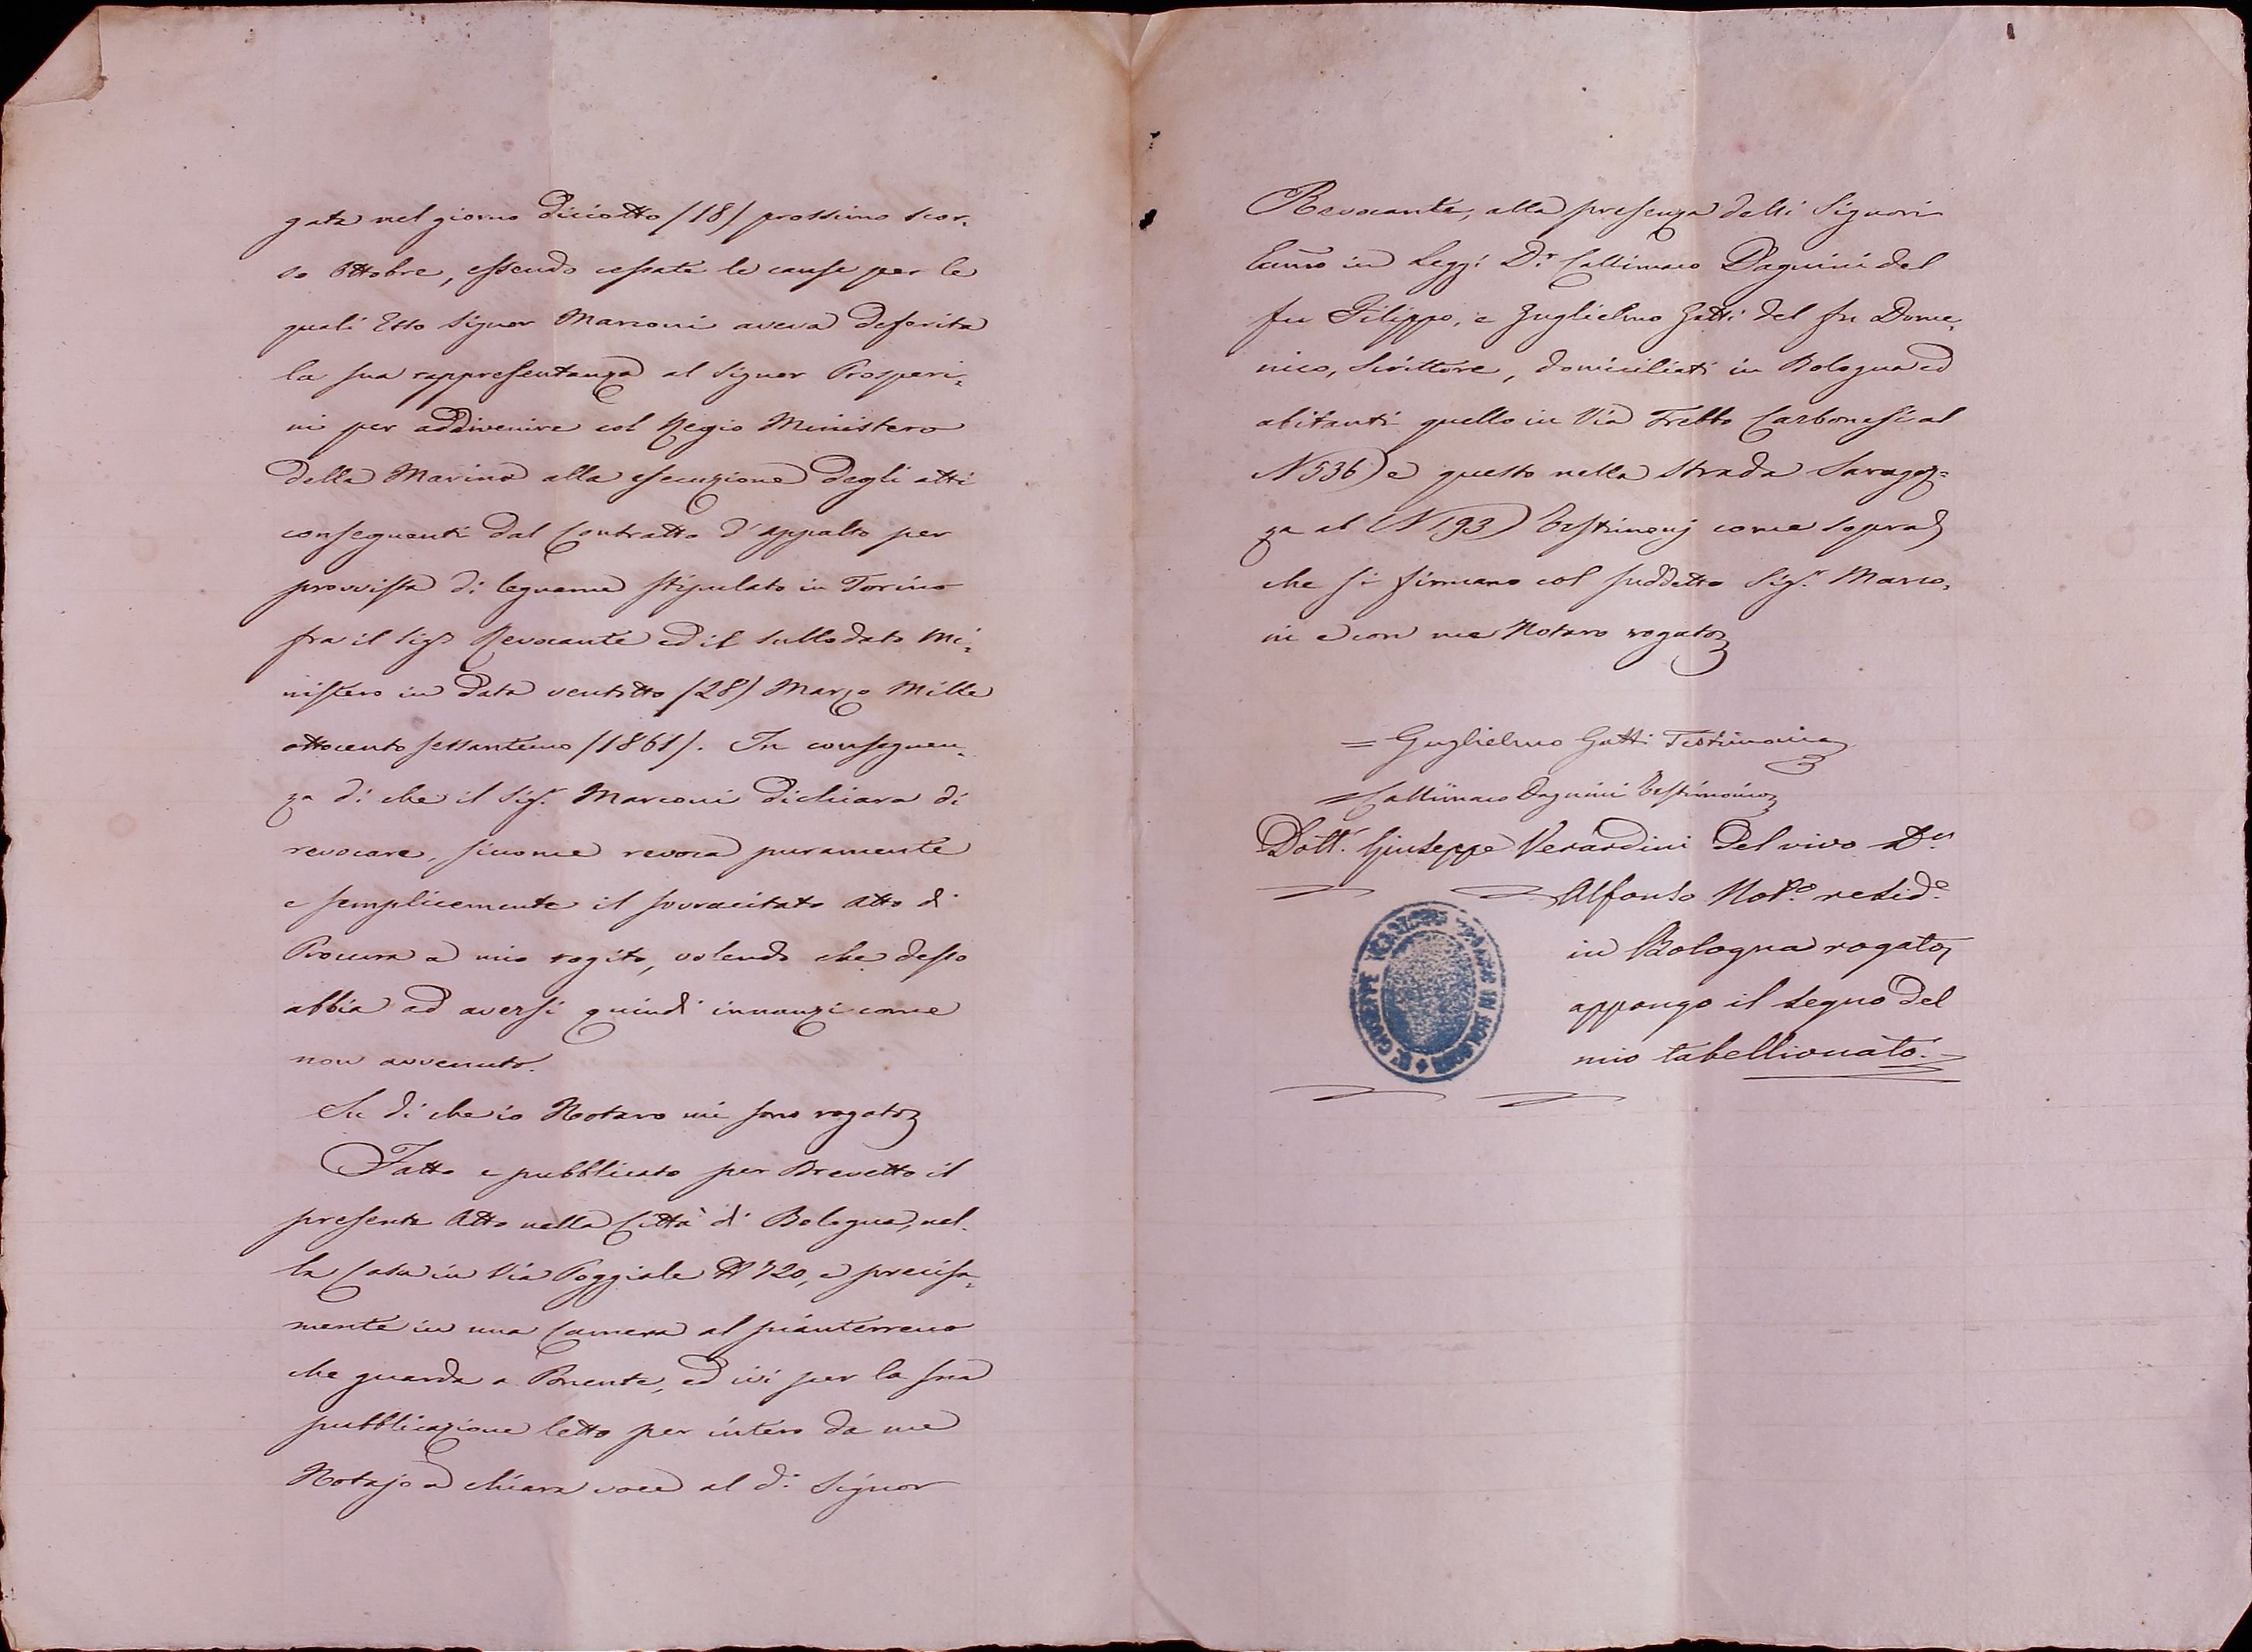 gata nel giorno diciotto /18/ prossimo scor-
so Ottobre, essendo cessate le cause per le
quali Esso Signor Marconi aveva deferita
la sua rappresentanza al Signor Prosperi-
ni per addivenire col Regio Ministero
della Marina alla esecuzione degli atti
conseguenti dal Contratto d'appalto per
provvista di legname stipulato in Torino
fra il Sigr Revocante ed il sullodato Mi-
nistero in data ventotto /28/ Marzo Mille
ottocento sessantuno /1861/. In conseguen-
za di che il Sigr. Marconi dichiara di
revocare, siccome revoca puramente
e semplicemente il sovracitato Atto di
Procura a mio rogito, volendo che desso
abbia ad aversi quindi innanzi come
non avvenuto.
Su di che io Notaro mi sono rogato
Fatto e pubblicato per Brevetto il
presente Atto nella Città di Bologna, nel-
la Casa in Via Poggiale N 720, e precisa-
mente in una Camera al pianterreno
che guarda a Ponente, ed ivi per la sua
pubblicazione letto per intero da me
Notajo a chiara voce al d. Signor
Revocante, alla presenza delli Signori
in Leggi Dr. Callimaco Dagnini del
fu Filippo, e Guglielmo Gatti del fu Dome-
nico, Scrittore, domiciliati in Bologna ed
abitanti quello in Via Trebbo Carbonesi al
N 536 e questo nella Strada Saragoz-
za al N 193 Testimonj come sopra
che si firmano col suddetto Sigr. Marco-
ni e con me Notaro rogato
= Guglielmo Gatti Testimonio
= Callimaco Dagnini Testimonio
Dott. Giuseppe Verardini del vivo Dr.
Alfonso Noto. residе.
in Bologna rogato
appongo il segno del
mio tabellionato.